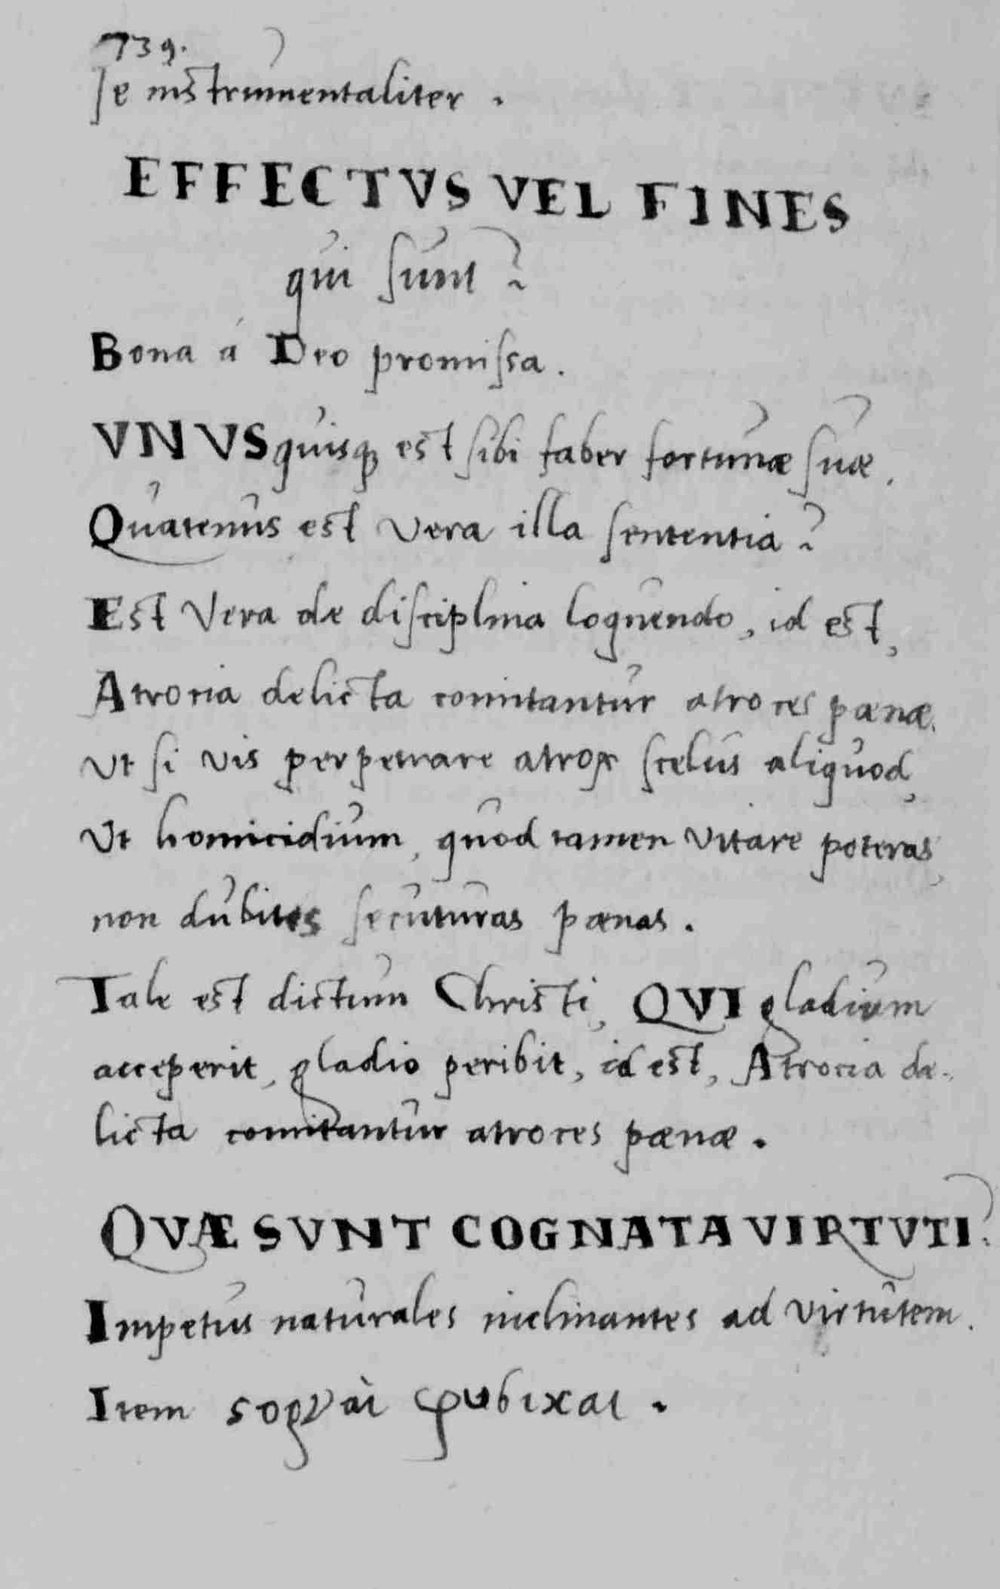 739.
se instrumentaliter.
EFFECTVS VEL FINES
qui sunt?
Bona á Deo promissa.
VNVSquisq; est sibi faber fortunæ suæ.
Quatenus est vera illa sententia?
Est vera de disciplina loquendo, id est,
Atrocia delicta comitantur atroces pænæ.
Vt si vis perpetrare atrox scelus aliquod,
Vt homicidium, quod tamen vitare poteras,
non dubites secuturas pænas.
Tale est dictum Christi, QVI gladium
acceperit, gladio peribit, id est, Atrocia de-
licta comitantur atroces pænæ.
QVÆ SVNT COGNATA VIRTVTI?
Impetus naturales inclinantes ad virtutem.
Item ςοργαὶ φυσικαι.